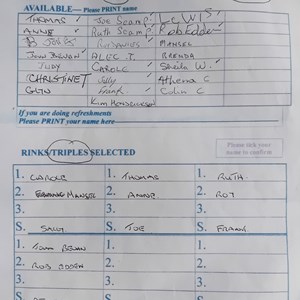 AVAILABLE— Please PRINT name
THOMAS ✓ JOE Scamp. LEWIS
ANNE ✓ Ruth Scamp.
B JONES MANSEL
JOHN BEVAN ALEC T. BRENDA
JUDY CAROLE ✓ Sheila W. ✓
CHRISTINE T ✓ Sally Athema C
COLIN Frank ✓ Colin C
Kim
If you are doing refreshments
Please PRINT your name here
RINKS/TRIPLES SELECTED
Please tick your
name to confirm
1. CAROLE 1. THOMAS 1. RUTH
2. MANSEL 2. ANNE 2. ROY
3. 3. 3.
S. SALLY S. JOE S. FRANK
1. JOHN BEVAN 1. 1.
2. ROB 2. 2.
3. 3. 3.